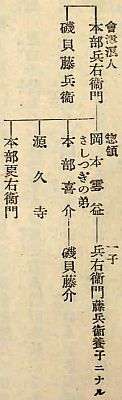 會津浪人
本部兵右衞門
磯貝藤兵衞
惣領
岡本雲益
一子
兵右衞門藤兵衞養子ニナル
さしつぎの弟
本部喜介
磯貝藤介
源久寺
本部更右衞門